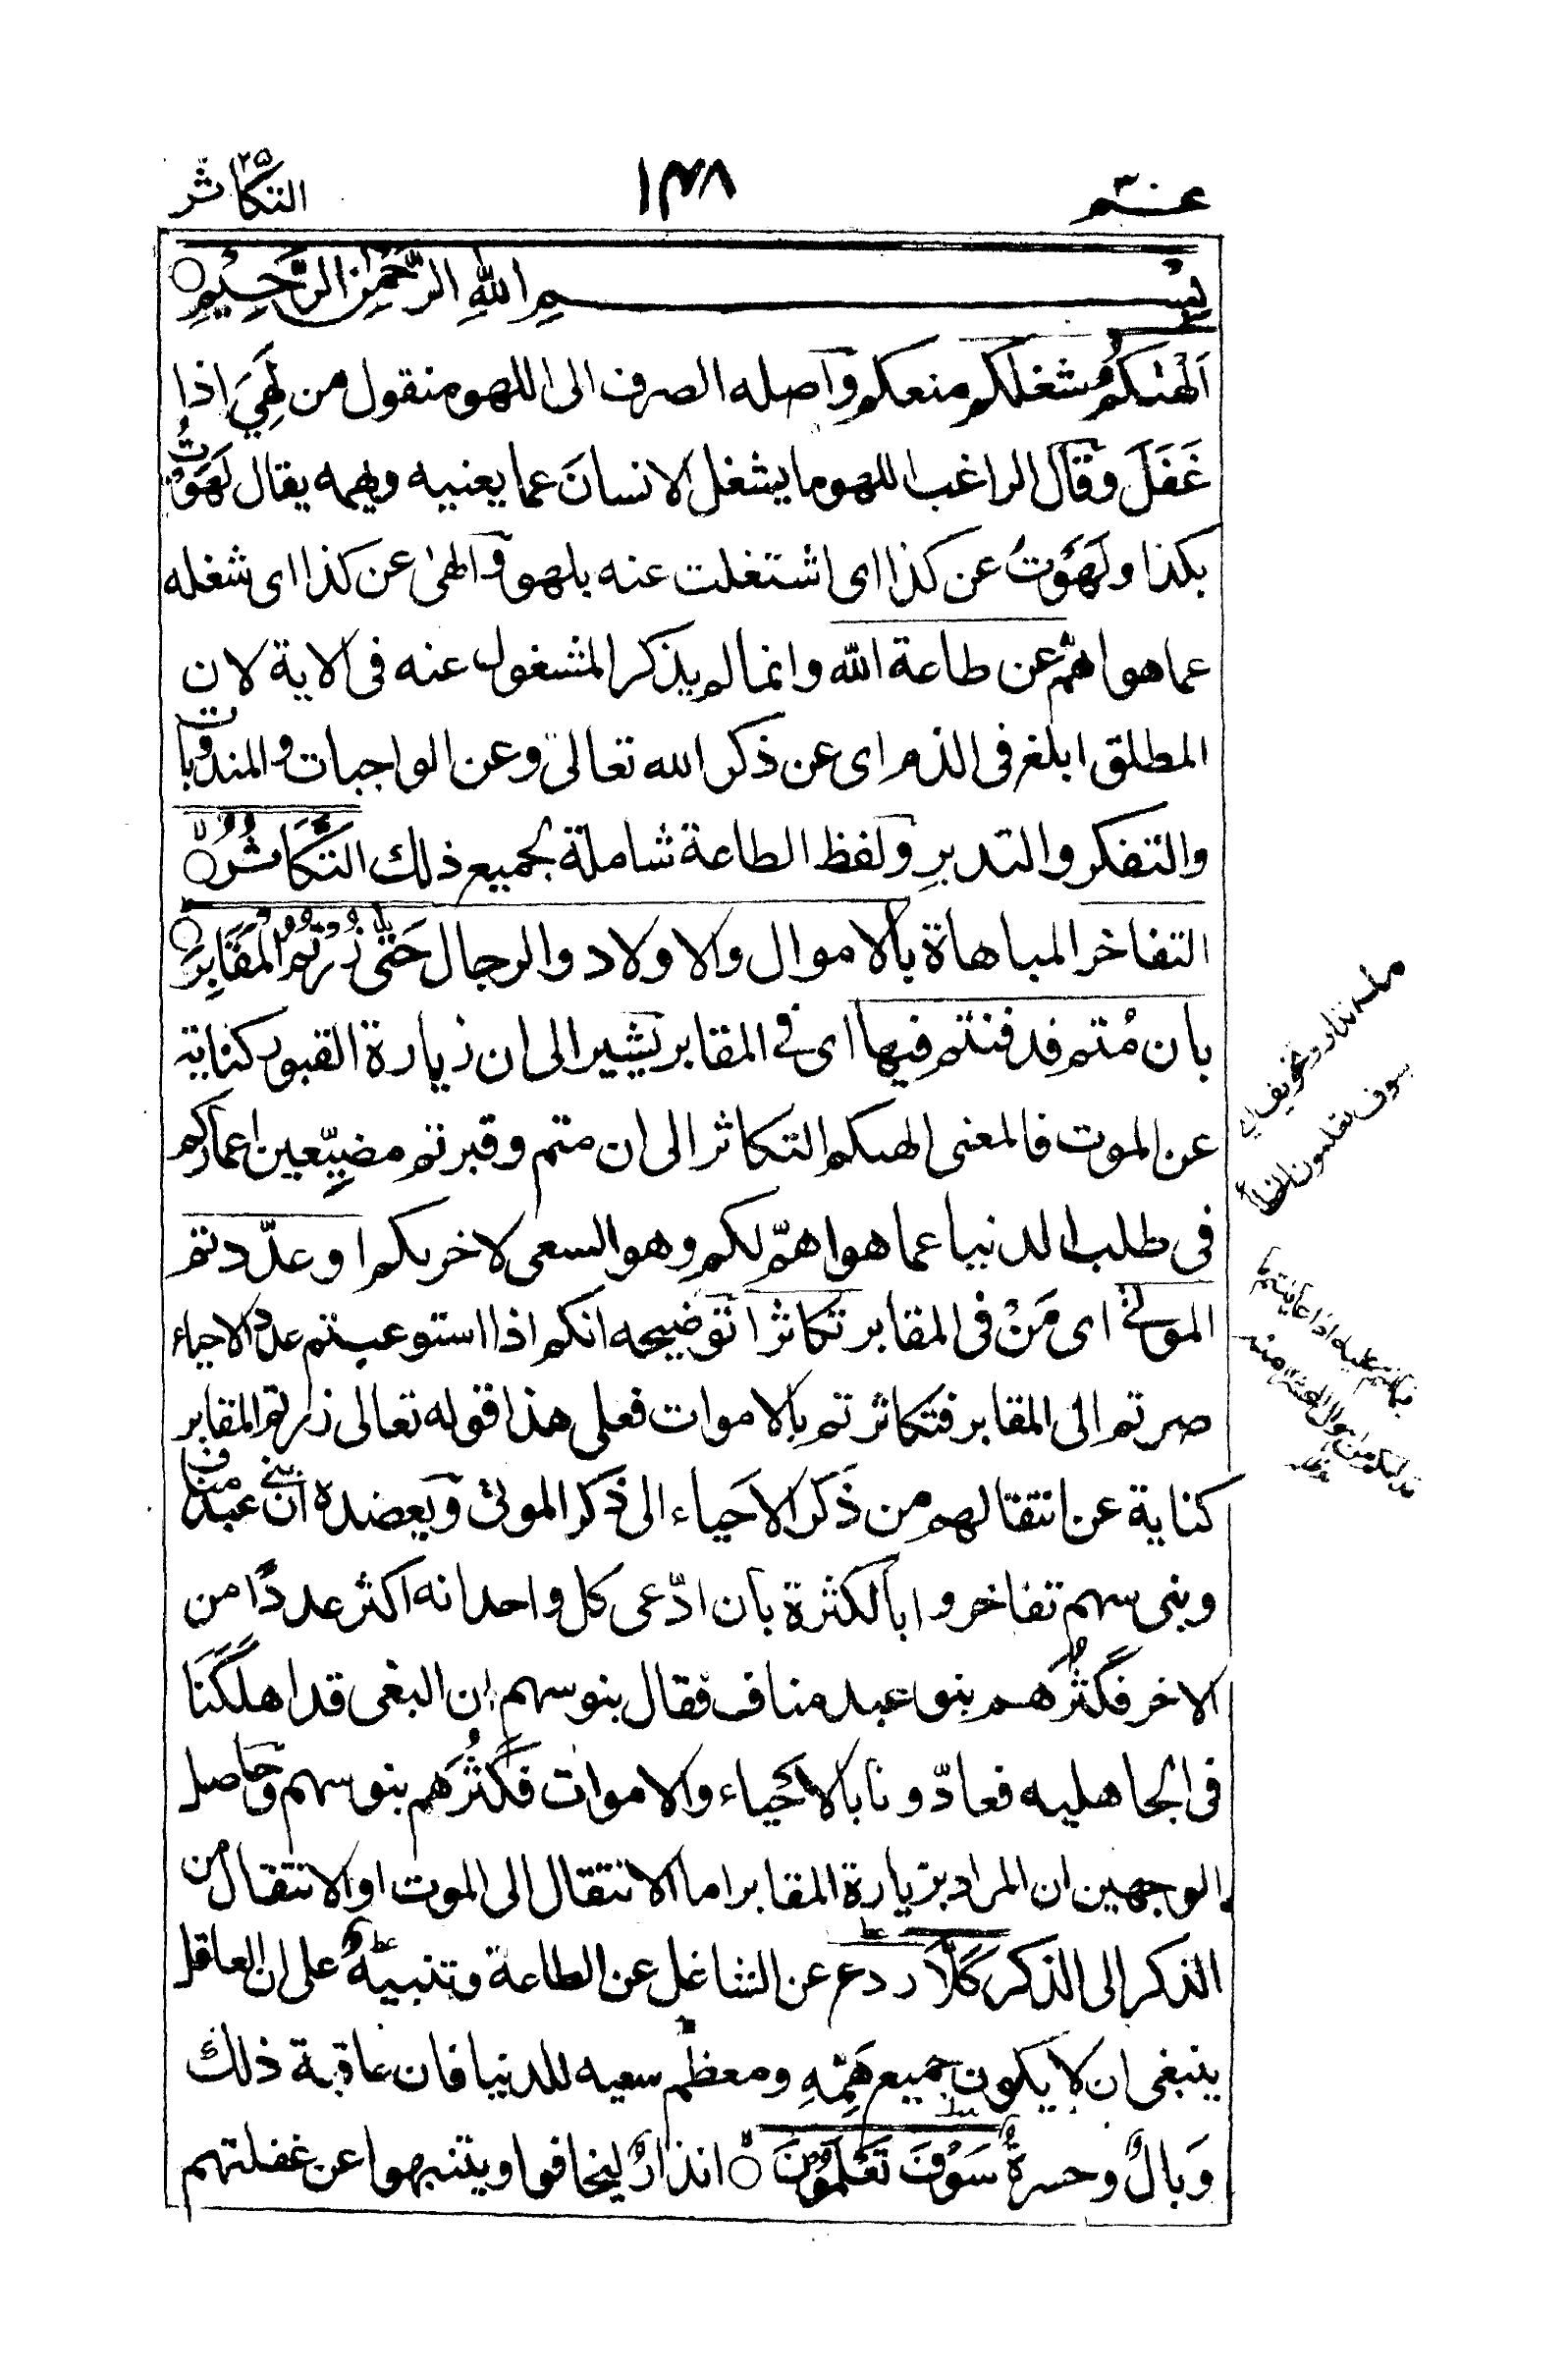 عـــم
١٣٨
التكاثر
بِسْـــــمِ اللهِ الرَّحْمٰنِ الرَّحِيْمِ
اَلْهٰىكُمُ شغلكم منعكم وآصله الصرف الى اللهو منقول من لَهِيَ اذا
غَفَلَ وقال الراغب اللهو ما يشغل الانسانَ عما يعنيه ويهمه يقال لَهَوْتُ
بكذا ولَهَوْتُ عن كذا اى اشتغلت عنه بلهو والهىٰ عن كذا اى شغله
عما هو اهمّ عن طاعة الله وانما لم يذكر المشغول عنه فى الاية لان
المطلق ابلغ فى الذم اى عن ذكر الله تعالى وعن الواجبات والمندوبات
والتفكر والتدبرِ ولفظ الطاعة شاملة لجميع ذلك التَّكَاثُرُ
التفاخر المباهاة بالاموال والاولاد والرجال حَتّٰى زُرْتُمُ الْمَقَابِرَ
بان مُتم فدفنتم فيها اى فى المقابر يشير الى ان زيارة القبور كناية
عن الموت فالمعنى الهىكم التكاثر الى ان متم وقبرتم مضيِّعين اعماركم
فى طلب الدنيا عما هو اهمّ لكم وهو السعى لاخرىكم او عدّدتم
الموتىٰ اى مَنْ فى المقابر تكاثرا توضيحه انكم اذا استوعبتم عدد الاحياء
صرتم الى المقابر فتكاثرتم بالاموات فعلى هذا قوله تعالى زرتم المقابر
كناية عن انتقالهم من ذكر الاحياء الى ذكر الموتى ويعضده ان بنى عبد مناف
وبنى سهم تفاخروا بالكثرة بان ادّعى كل واحد انه اكثر عددًا من
الاخر فكَثُرَهم بنو عبد مناف فقال بنو سهم ان البغى قد اهلكَنَا
فى الجاهليه فعادّونا بالاحياء والاموات فكَثُرَهم بنو سهم وحاصل
الوجهين ان المراد بزيارة المقابر اما الانتقال الى الموت او الانتقال من
الذكر الى الذكر كَلَّا ردع عن الشاغل عن الطاعة وتنبيهٌ على ان العاقل
ينبغى ان لا يكون جميع هَمِّهِ ومعظم سعيه للدنيا فان عاقبة ذلك
وَبالٌ وحسرةٌ سَوْفَ تَعْلَمُوْنَ انذارٌ ليخافوا ويتنبهوا عن غفلتهم
سوف تعلمون